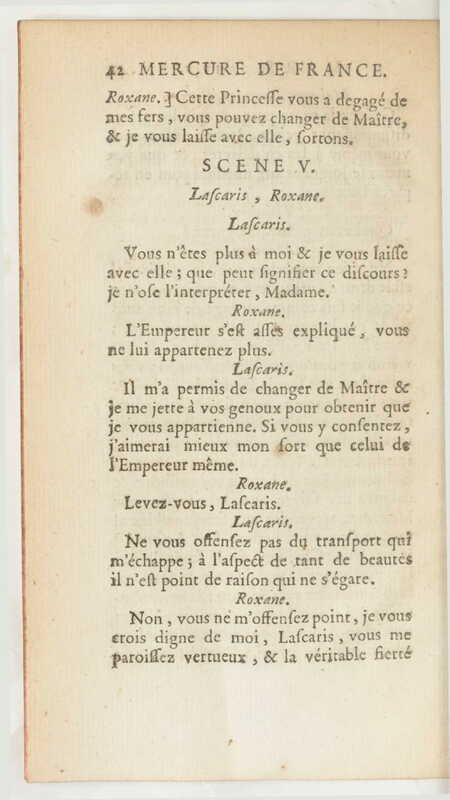 42 MERCURE DE FRANCE.
Roxane. ] Cette Princeſſe vous a degagé de
mes fers, vous pouvez changer de Maître,
& je vous laiſſe avec elle, ſortons.
SCENE V.
Laſcaris, Roxane.
Laſcaris.
Vous n'êtes plus à moi & je vous laiſſe
avec elle; que peut ſignifier ce diſcours?
je n'oſe l'interpréter, Madame.
Roxane.
L'Empereur s'eſt aſſés expliqué, vous
ne lui appartenez plus.
Laſcaris.
Il m'a permis de changer de Maître &
je me jette à vos genoux pour obtenir que
je vous appartienne. Si vous y conſentez,
j'aimerai mieux mon ſort que celui de
l'Empereur même.
Roxane.
Levez-vous, Laſcaris.
Laſcaris.
Ne vous offenſez pas du tranſport qui
m'échappe; à l'aſpect de tant de beautés
il n'eſt point de raiſon qui ne s'égare.
Roxane.
Non, vous ne m'offenſez point, je vous
crois digne de moi, Laſcaris, vous me
paroiſſez vertueux, & la véritable fierté